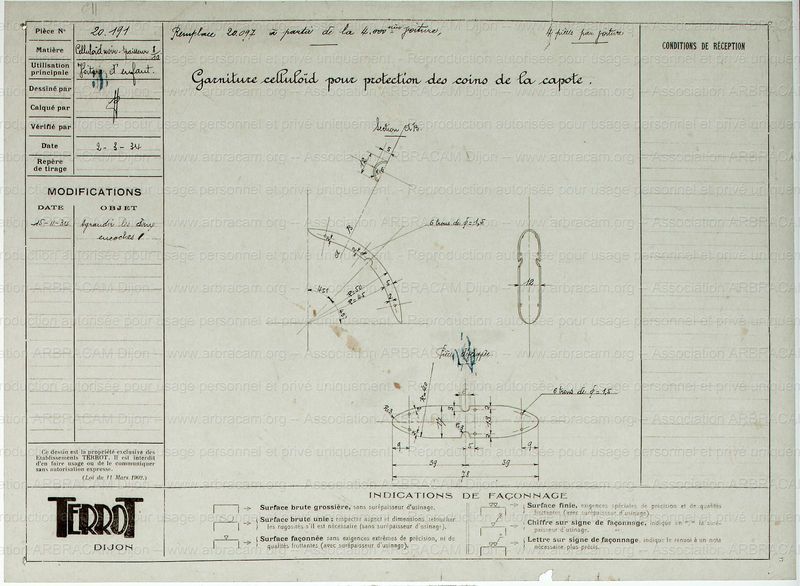 Pièce N° 20.191
Matière Celluloïd noir. épaisseur
Utilisation principale Voiture d'enfant.
Dessiné par
Calqué par
Vérifié par
Date 2-3-34
Repère de tirage
MODIFICATIONS
DATE OBJET
15-11-34 Agrandir les
encoches
Ce dessin est la propriété exclusive des
Etablissements TERROT. Il est interdit
d'en faire usage ou de le communiquer
sans autorisation expresse.
(Loi du 11 Mars 1902.)
TERROT
DIJON
Remplace 20.097 à partir de la 4.000ième voiture,
4 pièces par voiture
CONDITIONS DE RÉCEPTION
Garniture celluloïd pour protection des coins de la capote.
Section AB.
5
B
6 trous de ϕ=1,5
45°
R=50
R=45
12
6 trous de ϕ=1,5
9
5
9
39
39
78
INDICATIONS DE FAÇONNAGE
Surface brute grossière, sans surépaisseur d'usinage.
Surface brute unie: respecter aspect et dimensions, retoucher
les rugosités s'il est nécessaire (sans surépaisseur d'usinage).
Surface façonnée sans exigences extrêmes de précision, ni de
qualités frottantes (avec surépaisseur d'usinage).
Surface finie, exigences spéciales de précision et de qualités
frottantes (avec surépaisseur d'usinage).
Chiffre sur signe de façonnage, indique en m/m la suré-
paisseur d'usinage.
Lettre sur signe de façonnage, indique le renvoi à un nota
nécessaire plus précis.
Reproduction autorisée pour usage personnel et privé uniquement
www.arbracam.org -- Association ARBRACAM Dijon